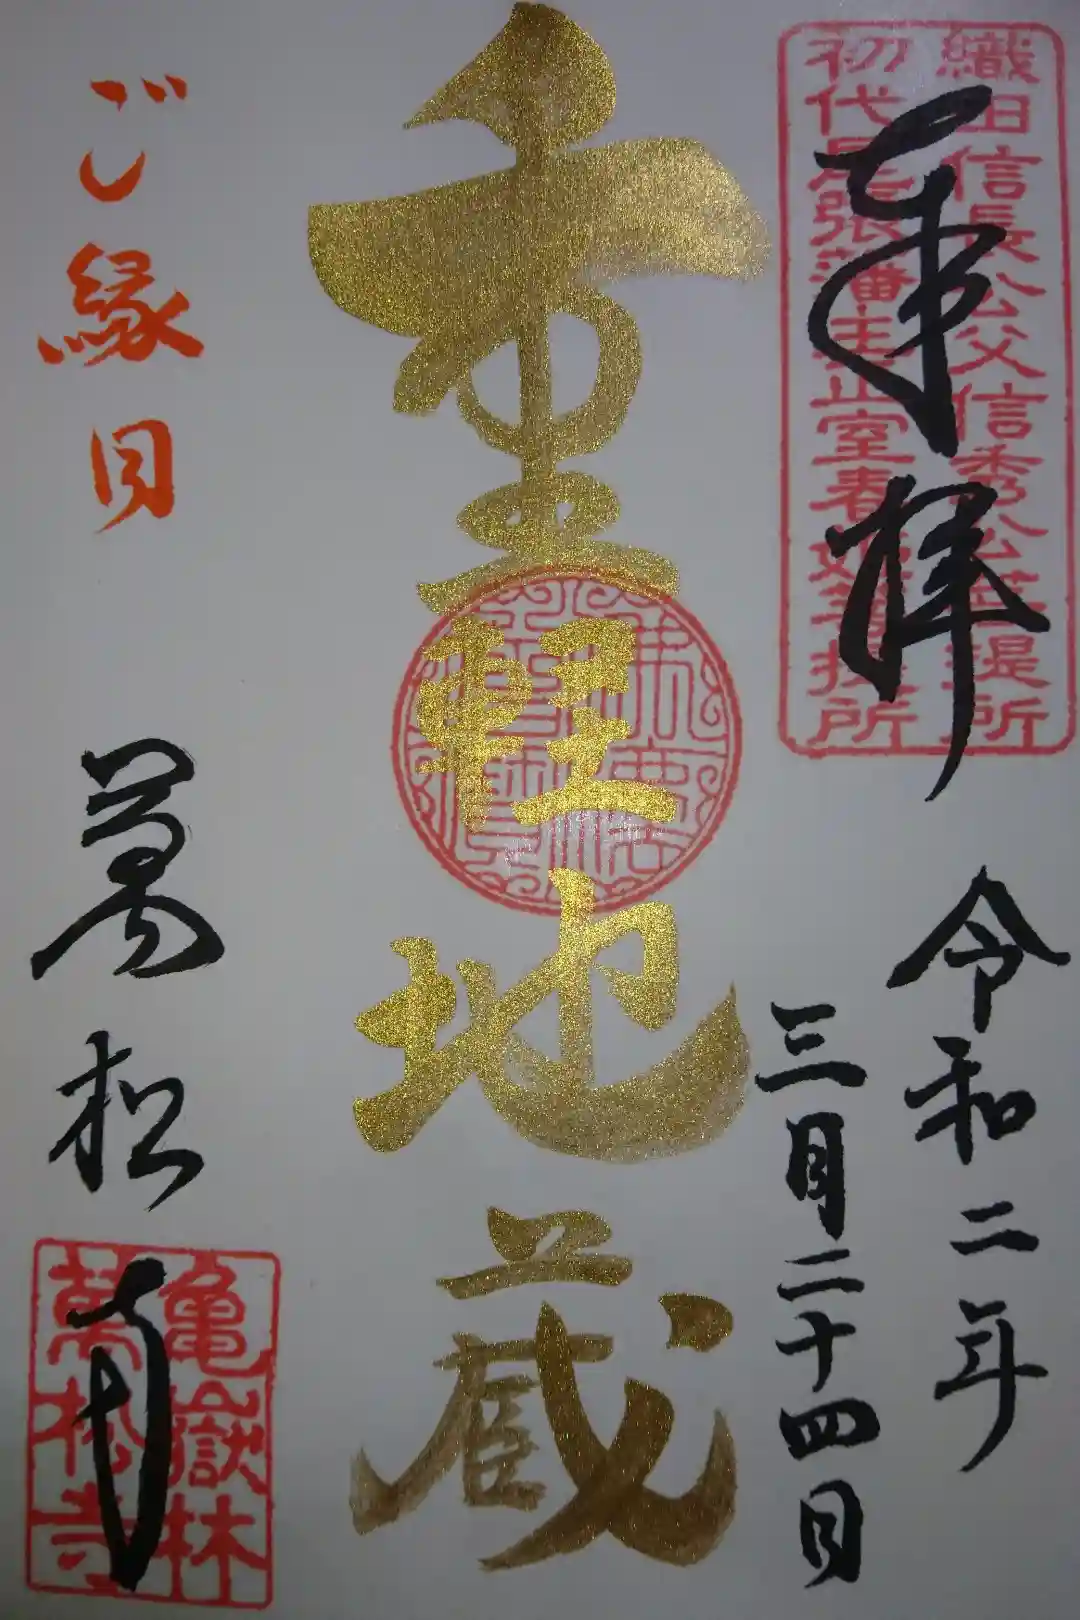 奉拝
織田信長公父信秀公菩提所
初代尾張藩主正室春姫菩提所
令和二年
三月二十四日
重軽地蔵
ご縁日
萬松寺
亀嶽林
萬松寺